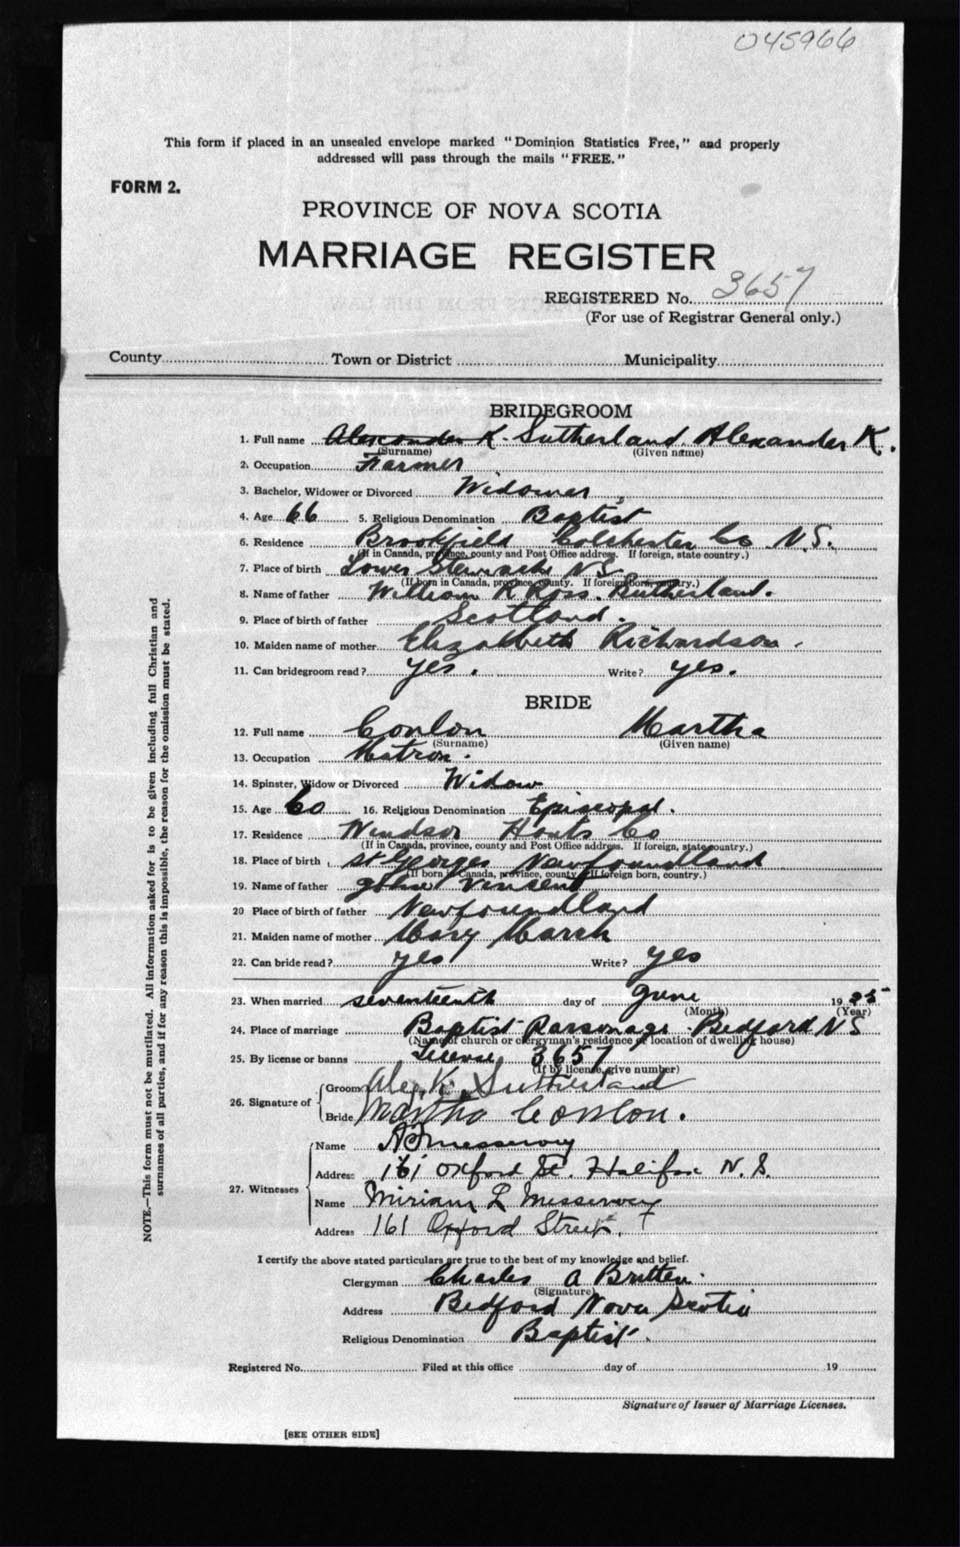 045966
This form if placed in an unsealed envelope marked "Dominion Statistics Free," and properly
addressed will pass through the mails "FREE."
FORM 2.
PROVINCE OF NOVA SCOTIA
MARRIAGE REGISTER
REGISTERED No. 3657
(For use of Registrar General only.)
County Town or District Municipality
BRIDEGROOM
1. Full name Alexander K. Sutherland Alexander K.
(Surname) (Given name)
2. Occupation Farmer
3. Bachelor, Widower or Divorced Widower
4. Age 66 5. Religious Denomination Baptist
6. Residence Brookfield Colchester Co N.S.
(If in Canada, province, county and Post Office address. If foreign, state country.)
7. Place of birth Lower Stewiacke N.S.
(If born in Canada, province, county. If foreign born, country.)
8. Name of father William R Ross. Sutherland.
9. Place of birth of father Scotland.
10. Maiden name of mother Elizabeth Richardson.
11. Can bridegroom read? yes. Write? yes.
BRIDE
12. Full name Conlon Martha
(Surname) (Given name)
13. Occupation Matron.
14. Spinster, Widow or Divorced Widow
15. Age 60 16. Religious Denomination Episcopal.
17. Residence Windsor Hants Co
(If in Canada, province, county and Post Office address. If foreign, state country.)
18. Place of birth St Georges Newfoundland
(If born in Canada, province, county. If foreign born, country.)
19. Name of father John Vinsent
20 Place of birth of father Newfoundland
21. Maiden name of mother Mary Marsh
22. Can bride read? yes Write? yes
23. When married seventeenth day of June 1935
(Month) (Year)
24. Place of marriage Baptist Parsonage Bedford N S
(Name of church or clergyman's residence or location of dwelling house)
25. By license or banns License 3657
(If by license, give number)
26. Signature of Groom Alex K. Sutherland
Bride Martha Conlon.
27. Witnesses Name Messervey
Address 161 Oxford St. Halifax N.S.
Name Miriam L Messervey
Address 161 Oxford Street.
I certify the above stated particulars are true to the best of my knowledge and belief.
Clergyman Charles A Britten.
(Signature)
Address Bedford Nova Scotia
Religious Denomination Baptist.
Registered No. Filed at this office day of 19
Signature of Issuer of Marriage Licenses.
[SEE OTHER SIDE]
NOTE.—This form must not be mutilated. All information asked for is to be given including full Christian and
surnames of all parties, and if for any reason this is impossible, the reason for the omission must be stated.